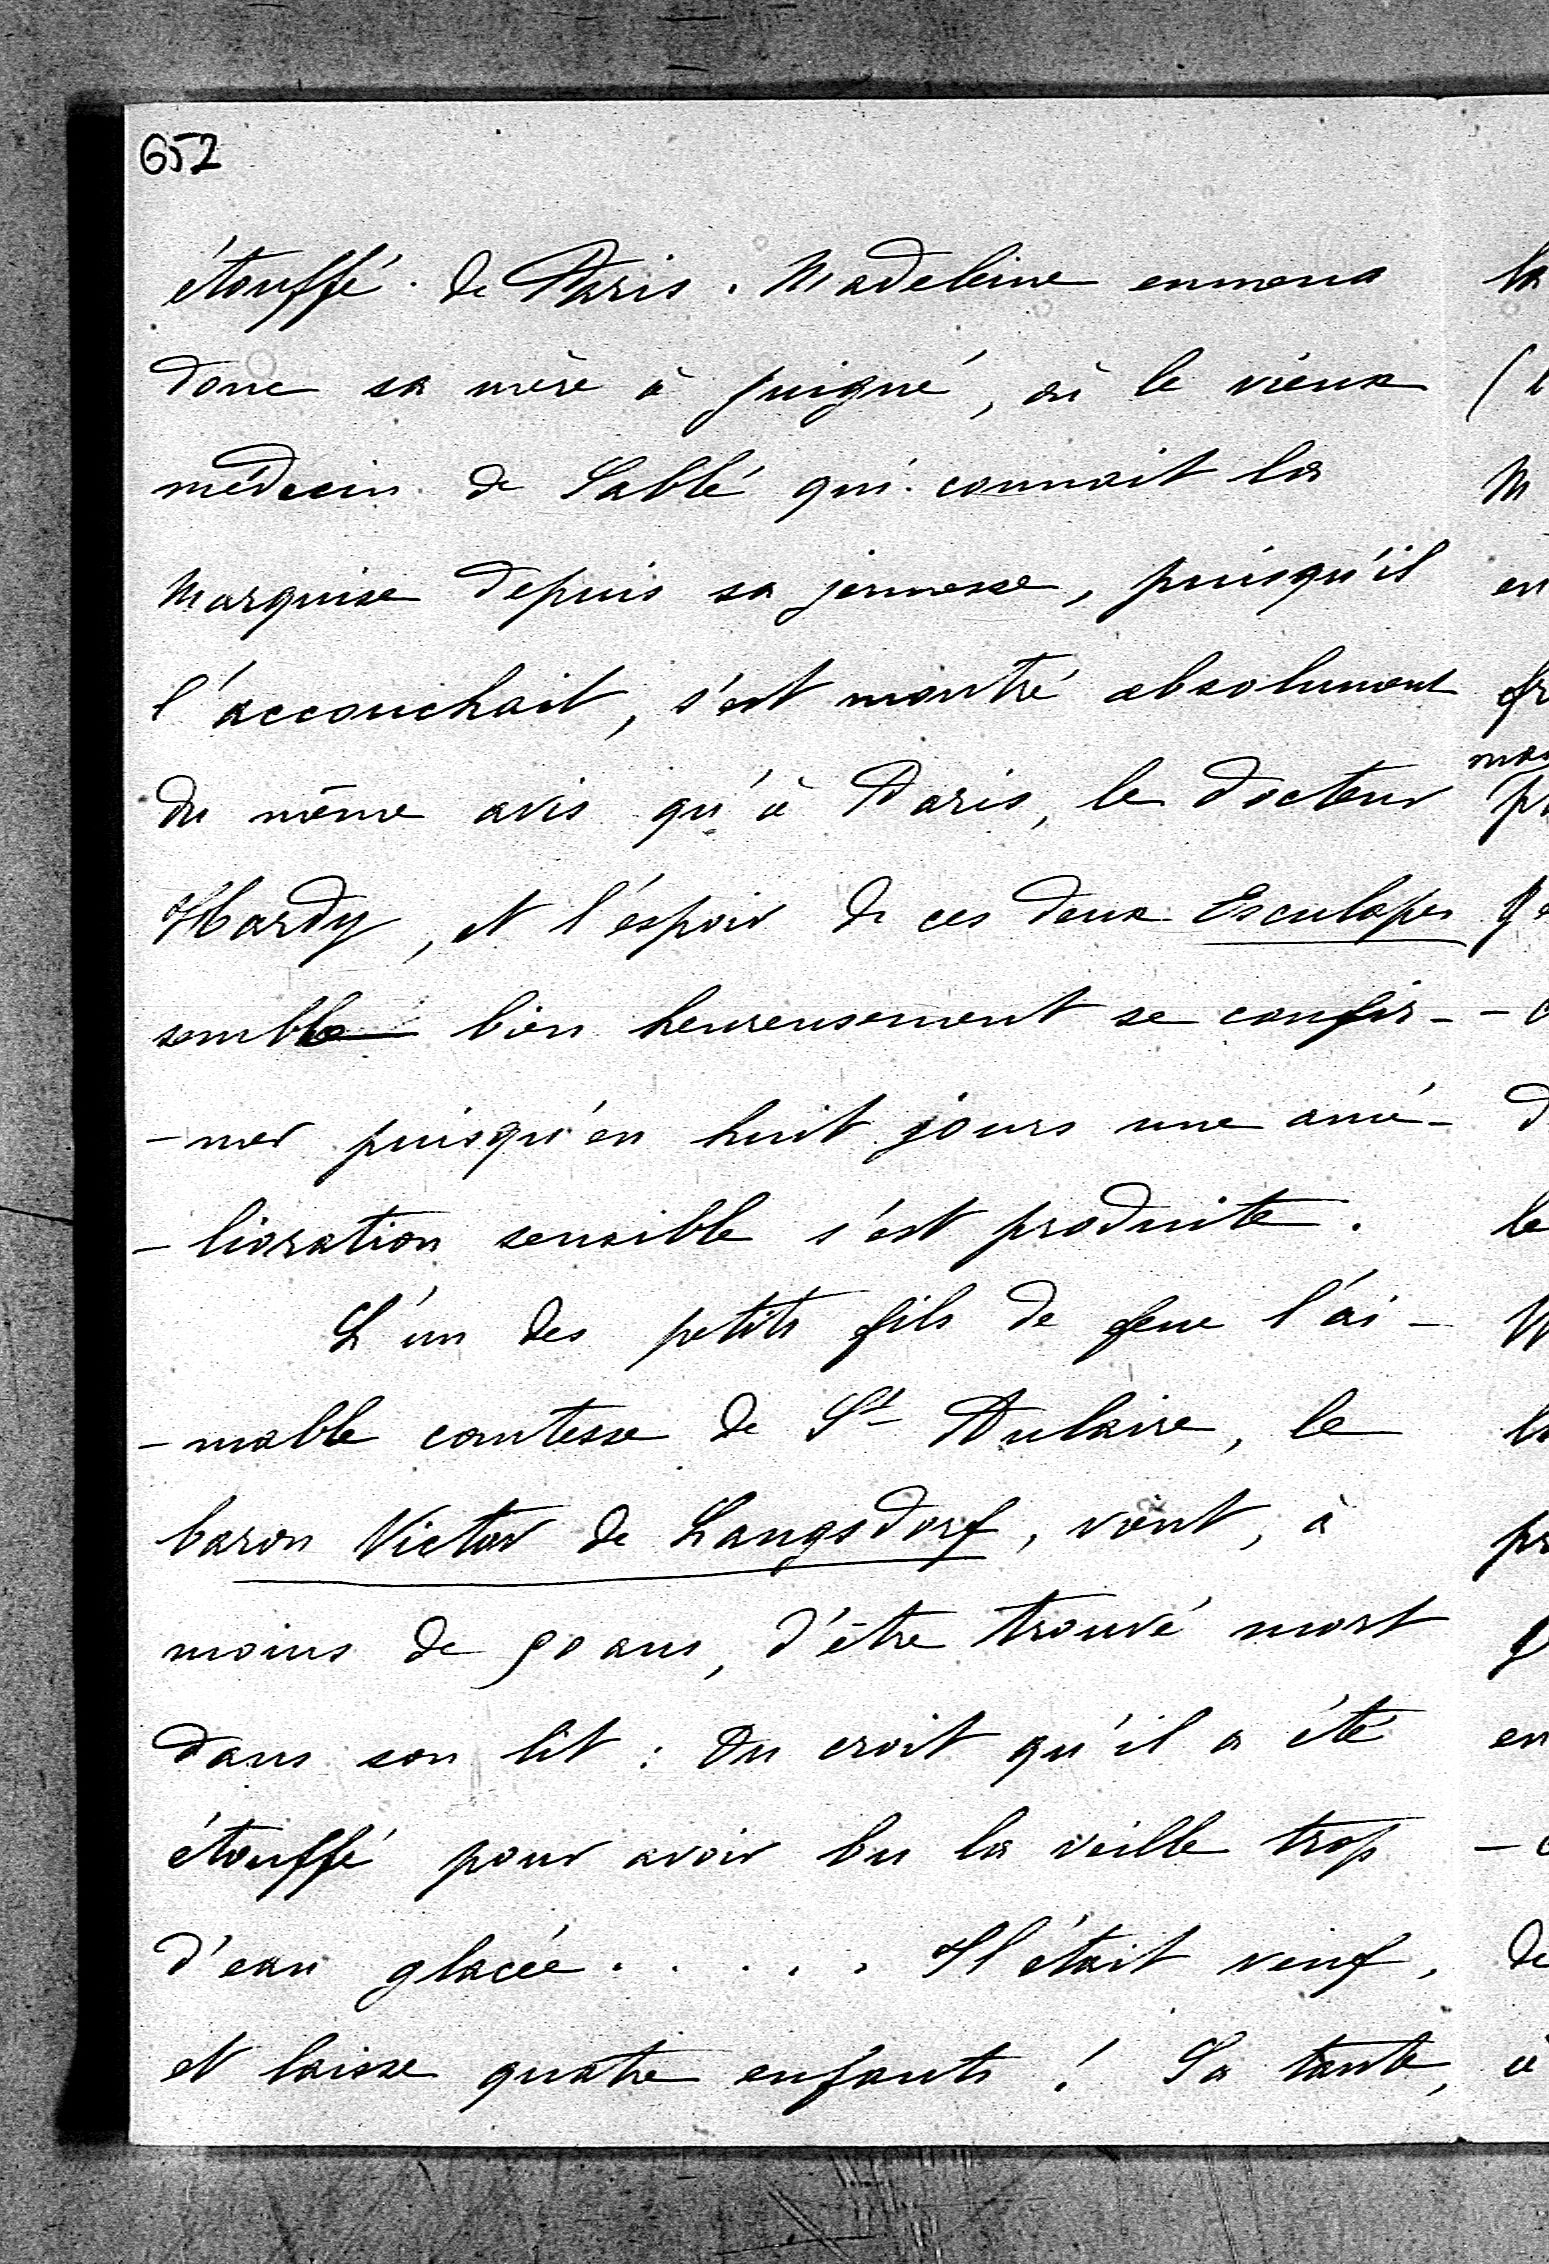 652
étouffé de Paris. Madeleine emmena
donc sa mère à Juigné, où le vieux
médecin de Sablé qui connait la
Marquise depuis sa jeunesse, puisqu'il
l'accouchait, s'est montré absolument
du même avis qu'à Paris, le docteur
Hardy, et l'espoir de ces deux Esculapes
semble bien heureusement se confir-
-mer puisqu'en huit jours une amé-
-lioration sensible s'est produite.
L'un des petits fils de feue l'ai-
-mable comtesse de St Aulaire, le
baron Victor de Langsdorf, vient, à
moins de 50 ans, d'être trouvé mort
dans son lit : On croit qu'il a été
étouffé pour avoir bu la veille trop
d'eau glacée. . . . . Il était veuf,
et laisse quatre enfants ! Sa tante,